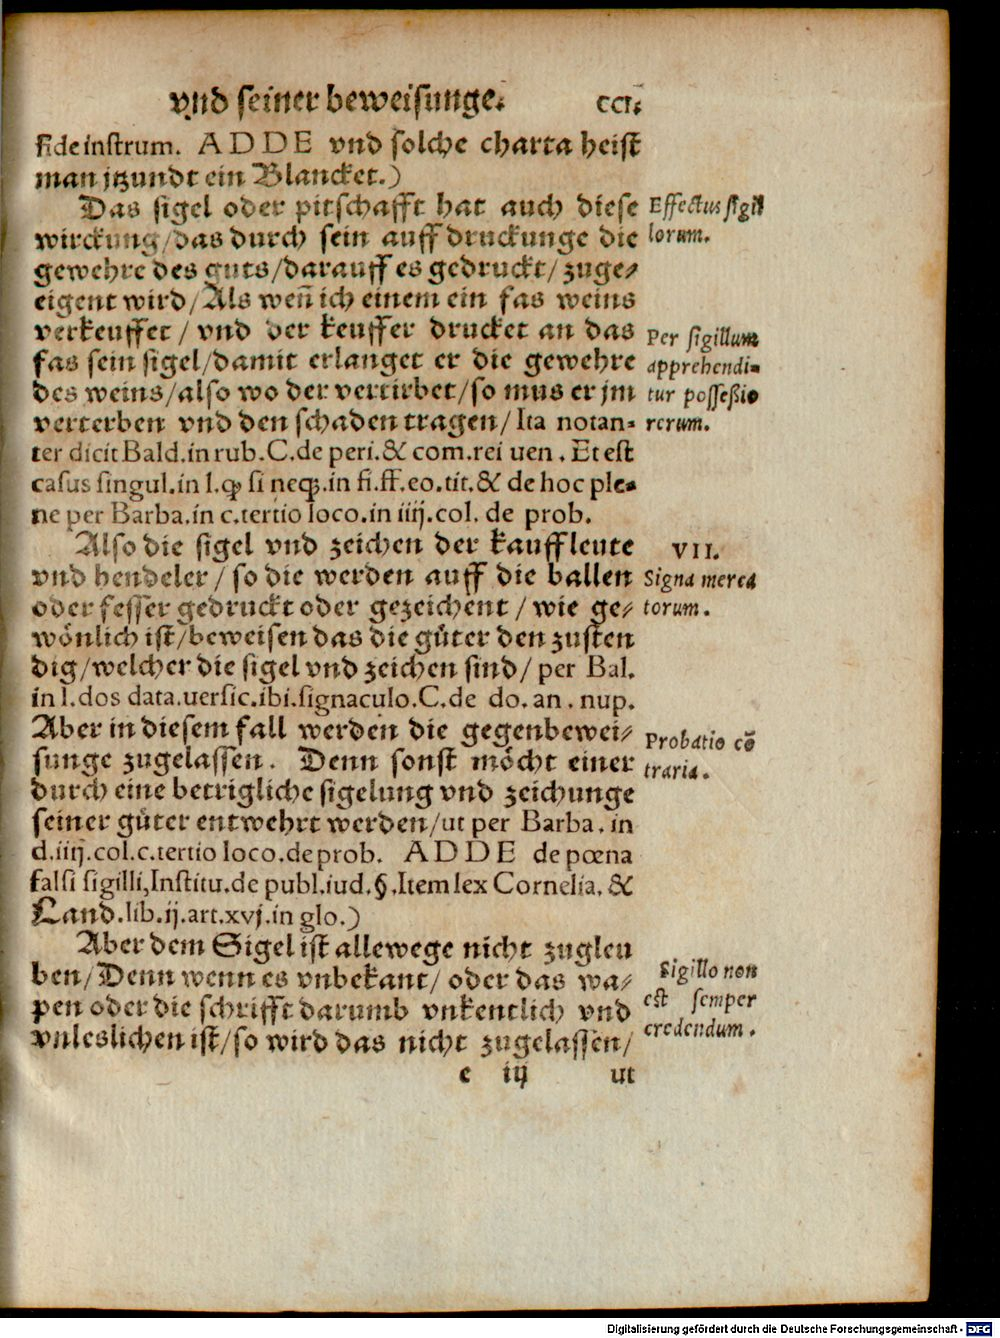 vnd seiner beweisunge. CCI.
fide instrum. ADDE vnd solche charta heist
man jtzundt ein Blancket.)
Das sigel oder pitschafft hat auch diese
wirckung/das durch sein auff druckunge die
gewehre des guts/darauff es gedruckt/ zuge⸗
eigent wird/Als weñ ich einem ein fas weins
verkeuffet/ vnd der keuffer drucket an das
fas sein sigel/damit erlanget er die gewehre
des weins/also wo der vertirbet/so mus er jm
verterben vnd den schaden tragen/ Ita notan-
ter dicit Bald.in rub.C.de peri.& com.rei uen. Et est
casus singul.in l.ꝙ si neqꝫ.in fi.ff.eo.tit.& de hoc ple-
ne per Barba.in c.tertio loco.in iiij.col. de prob.
Effectus sigil
lorum.
Per sigillum
apprehendi-
tur possessio
rerum.
Also die sigel vnd zeichen der kauffleute
vnd hendeler/ so die werden auff die ballen
oder fesser gedruckt oder gezeichent/ wie ge⸗
wönlich ist/beweisen das die güter den zusten
dig/welcher die sigel vnd zeichen sind/ per Bal.
in l.dos data.uersic.ibi.signaculo.C.de do.an.nup.
Aber in diesem fall werden die gegenbewei⸗
sunge zugelassen. Denn sonst möcht einer
durch eine betrigliche sigelung vnd zeichunge
seiner güter entwehrt werden/ut per Barba.in
d.iiij.col.c.tertio loco.de prob. ADDE de pœna
falsi sigilli,Institu.de publ.iud.§.Item lex Cornelia.&
Land.lib.ij.art.xvj.in glo.)
VII.
Signa merca
torum.
Probatio cō
traria.
Aber dem Sigel ist allewege nicht zugleu
ben/Denn wenn es vnbekant/ oder das wa⸗
pen oder die schrifft darumb vnkentlich vnd
vnleslichen ist/so wird das nicht zugelassen/
Sigillo non
est semper
credendum.
c iij ut
Digitalisierung gefördert durch die Deutsche Forschungsgemeinschaft - DFG